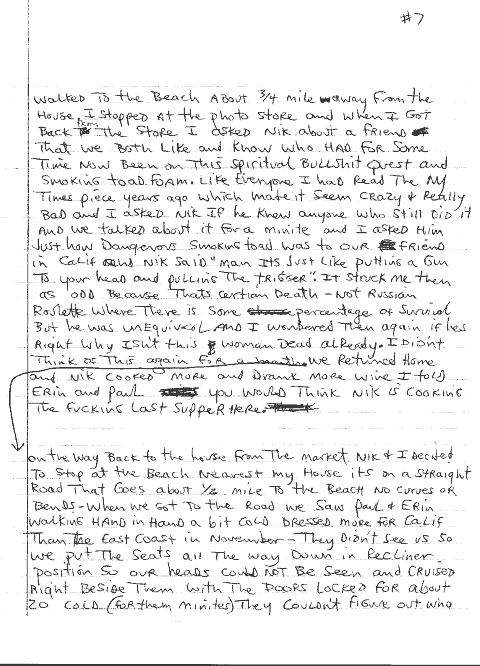 #7
walked To the Beach About 3/4 mile away From the
House, I stopped At the photo store and when I Got
Back From The Store I asked Nik about a Friend
That we Both Like and Know who HAD For Some
Time Now Been on This Spiritual Bullshit Quest and
Smoking toad Foam. Like Everyone I had Read The NY
Times piece years ago which made it Seem CRAZY & Really
Bad and I asked Nik IF he Knew anyone who Still Did it
And we Talked about it For a minite and I asked Him
Just how Dangerous Smoking toad was to our Friend
in Calif and Nik Said "Man Its Just Like putting a Gun
To your head and pulling The TRIGGER". IT struck me then
as ODD Because Thats Certian Death - Not Russian
Roulette Where There is Some percentage of Survival
But he was unEquivical And I wondered Then again if hes
Right Why ISn't this woman Dead alReady. I Didn't
Think of This again For a month. we Returned Home
and Nik Cooked more and Drank More wine I told
Erin and Paul you WOULD Think Nik is Cooking
The Fucking Last SuppeR Here.
on the Way Back to the house From The market Nik & I Decided
To Stop at the Beach Nearest my House its on a StRaight
Road That Goes about 1/2 mile To the Beach No Curves OR
Bends - When we Got To the Road we Saw Paul & ERin
walking HAND in Hand a bit Cold DRessed more For Calif
Than The East Coast in November - They Didn't See us So
we put The Seats all The way Down in Recliner
position So our heads Could NOT Be Seen and CRuised
Right BesiDe Them with The Doors Locked For about
20 Cold (for them minites) They Couldn't Figure out who